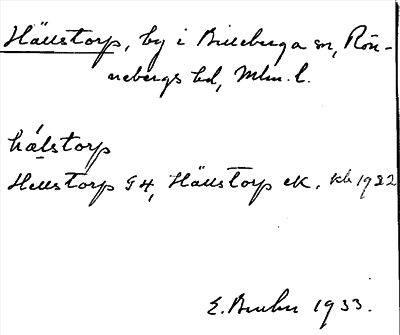 Hällstorp, by i Billeberga sn, Rön-
nebergs hd, Mlm. l.
hálstorp
Hellstorp G4, Hällstorp ek. kb 1932
E. Bruhn 1933.